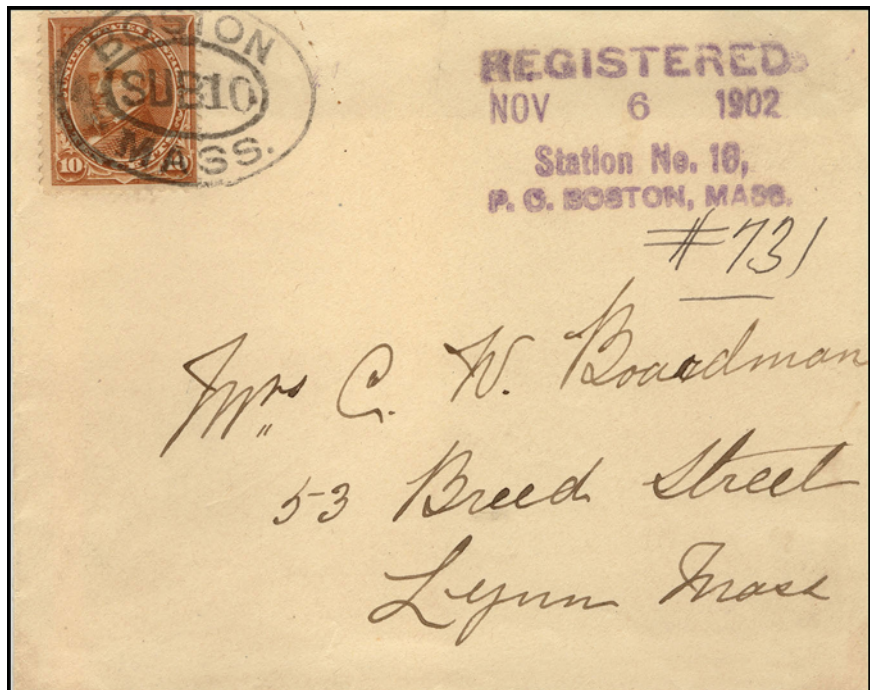 BOSTON
SUB 10
MASS.
10
REGISTERED
NOV 6 1902
Station No. 10,
P. O. BOSTON, MASS.
#731
Mrs C. W. Boardman
53 Breed Street
Lynn Mass